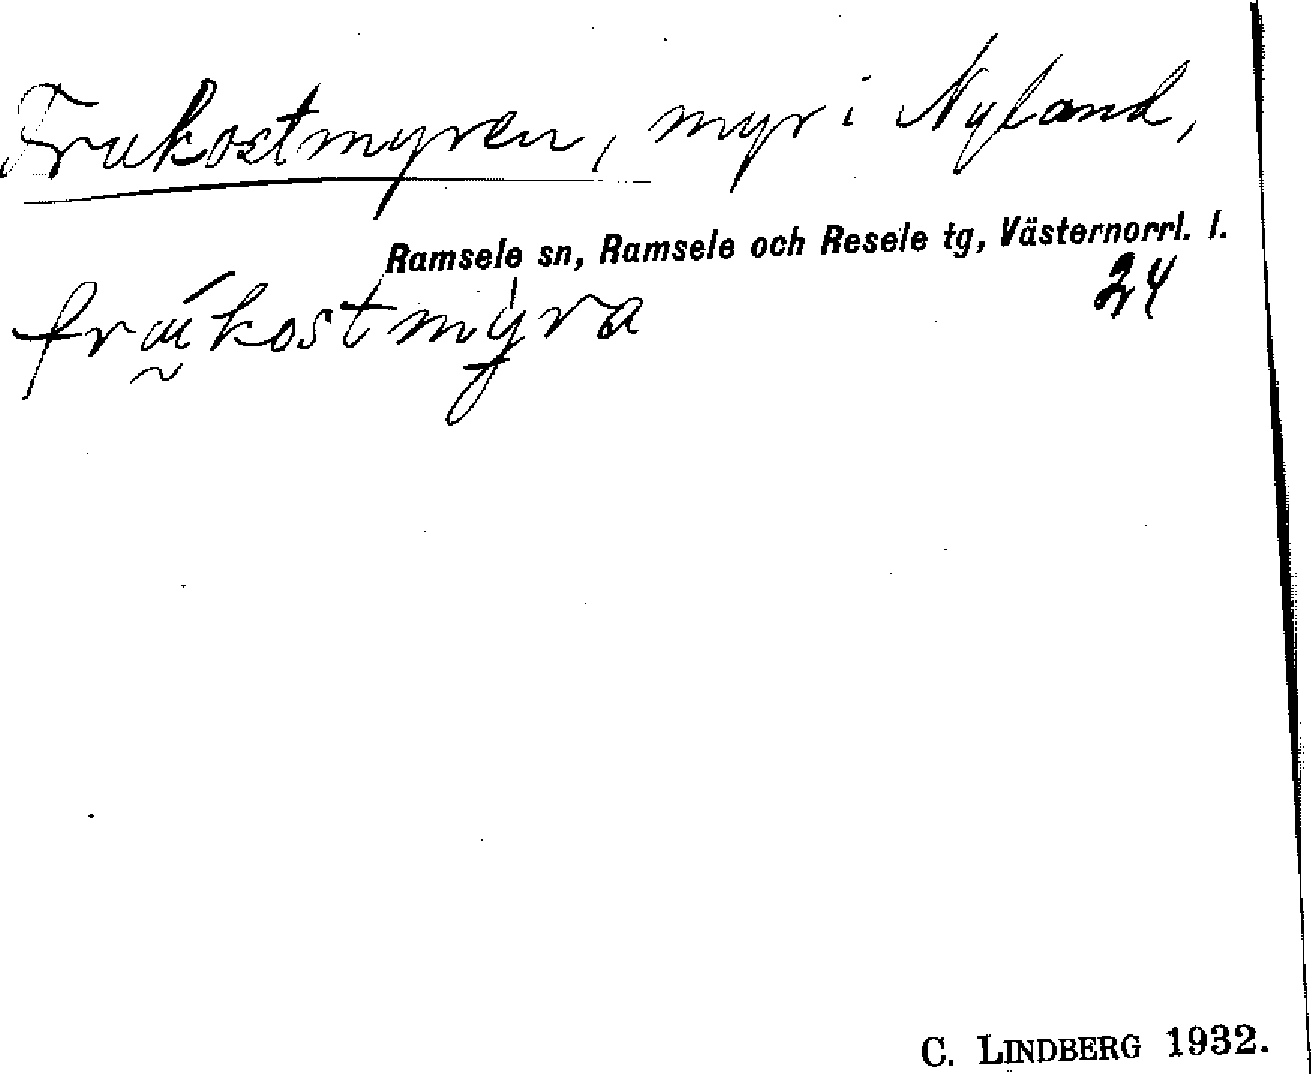 Frukostmyren, myr i Nyland,
Ramsele sn, Ramsele och Resele tg, Västernorrl. l.
24
frúkostmyra
C. LINDBERG 1932.